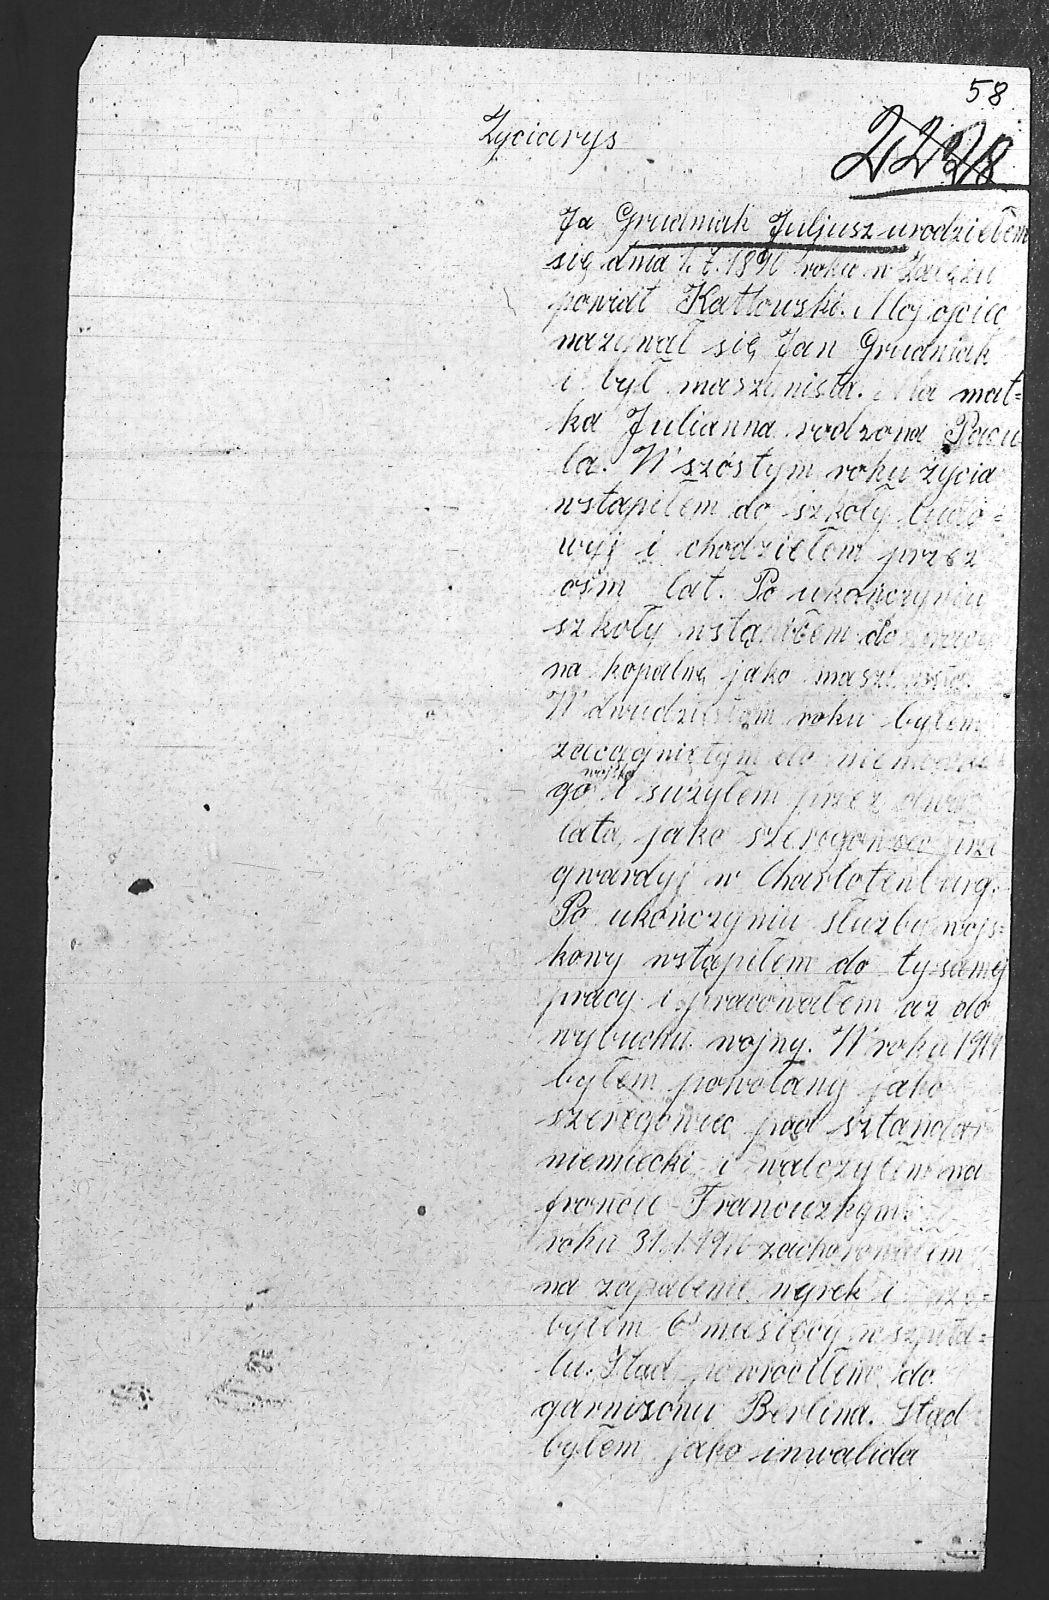 58
2228
Życiorys
Ja Grudniak Juljusz urodziełem
się dnia 1. 7. 1890 roku w Załężu
powiat Kattowski. Moj ojciec
nazywał się Jan Grudniak
i był maszynista. Ma mat=
ka Julianna rodzona Pacu
la. W szóstym roku życia
wstąpiłem do szkoły ludo=
wyj i chodziełem przez
ośm lat. Po ukończyniu
szkoły wstąpiłem do pracy
na kopalnę jako
W dwudziestym roku byłem
zacągniętym do niemieckie
go wojska i suzyłem przez dwa
lata, jako szeregowiec przi
gwardyj w Charlotenburg.
Po ukończyniu służby wojs=
kowy wstąpiłem do tysamej
pracy i pracowałem aż do
wybuchu wojny. W roku 1914
byłem powołany jako
szeregowiec pod sztandar
niemiecki i walczyłem na
froncie Francuzkym.
roku 31. 1. 1916 zachorowałem
na zapalenie nyrek i prze=
byłem 6 miesięcy w szpita=
lu. Stąd powróciłem do
garnizonu Berlina. Stąd
byłem jako inwalida